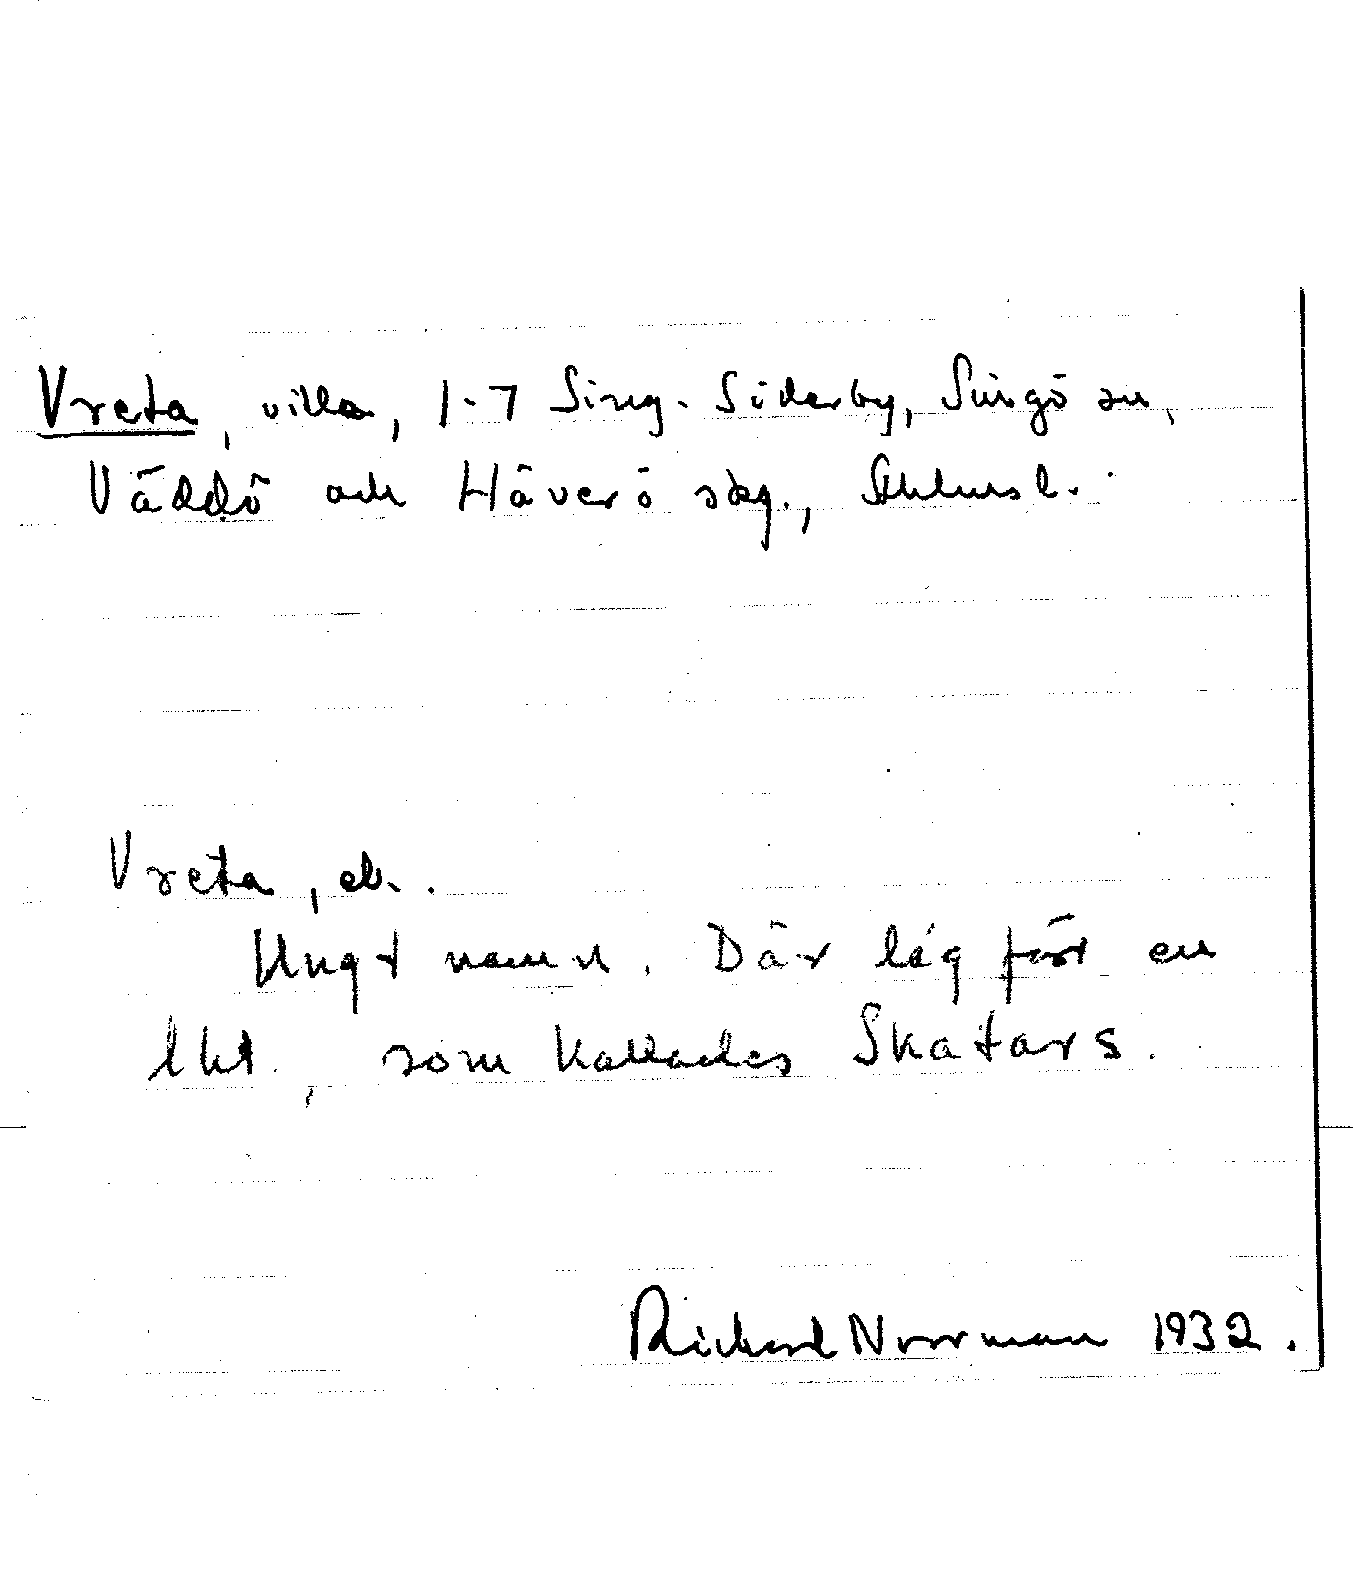 Vreta, villa, 1-7 Sing-Söderby, Singö sn,
Väddö och Häverö skg., Sthlmsl.
Vreta, eb..
Ungt namn. Där låg förr en
lht, som kallades Skatars.
Richard Norrman 1932.